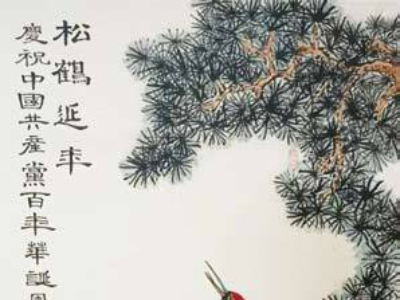 松鶴延年
慶祝中國共産黨百年華誕